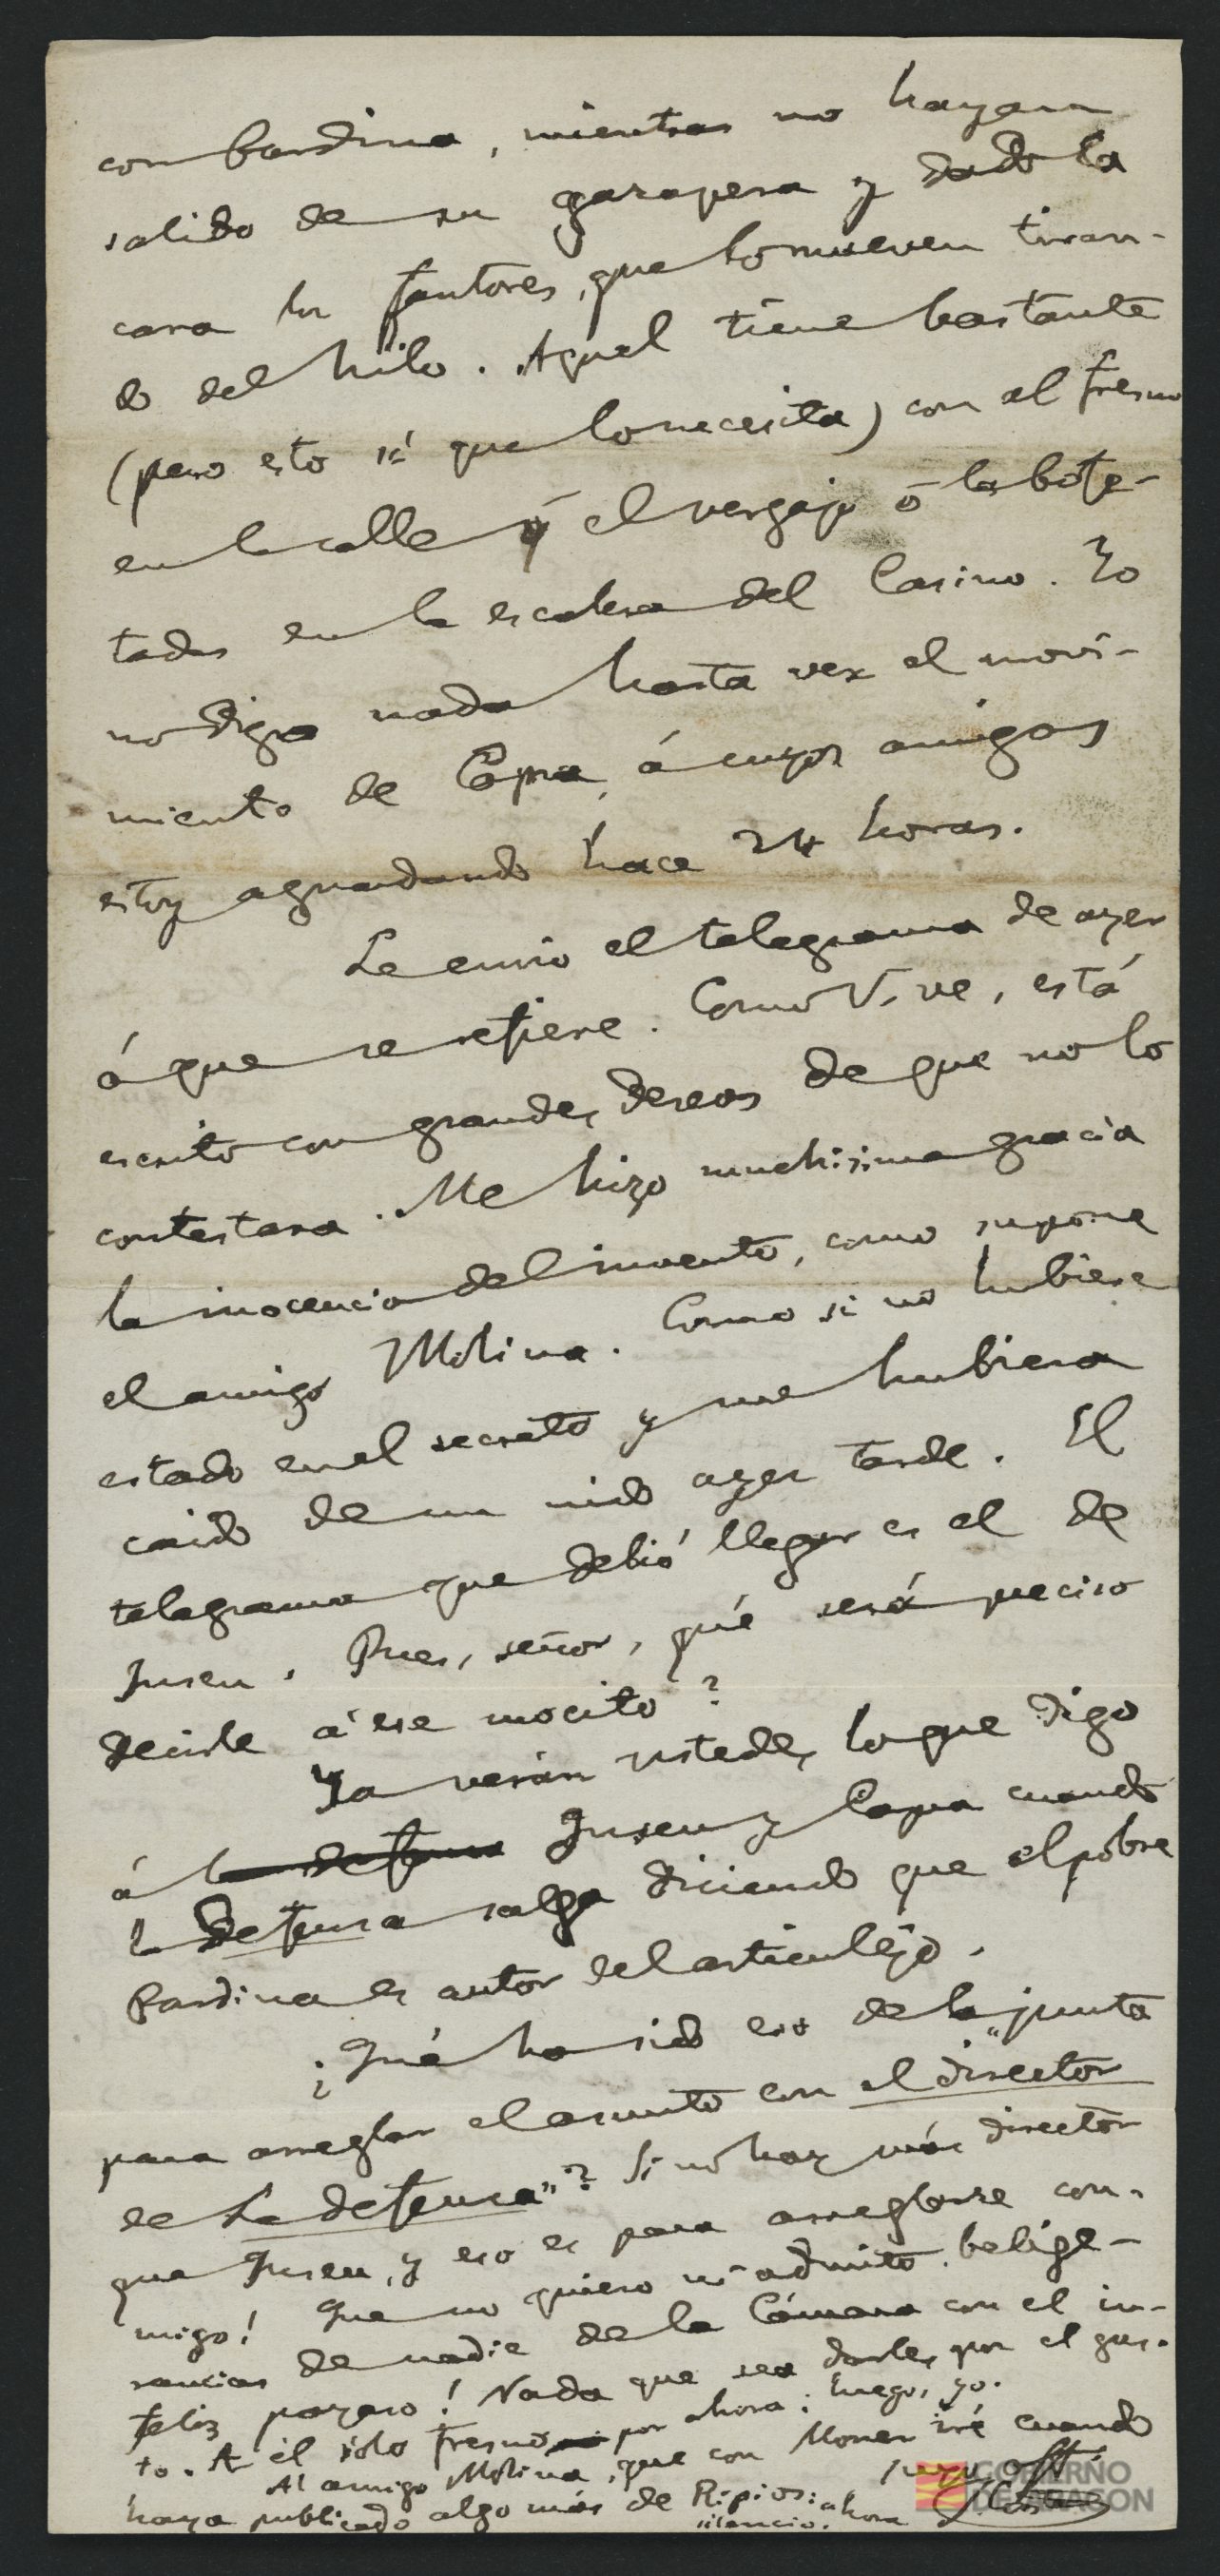 con Bardina, mientras no hayan
salido de su gazapera y dado la
cara los fautores, que lo mueven tiran-
do del hilo. Aquel tiene bastante
(pero esto sí que lo necesita) con el fresno
en la calle ó el vergajo ó las bofe-
tadas en la escalera del Casino. Yo
no digo nada hasta ver el movi-
miento de Capua, á cuyos amigos
estoy aguardando hace 24 horas.
Le envio el telegrama de ayer
á que se refiere. Como V. ve, está
escrito con grandes deseos de que no lo
contestara. Me hizo muchisima gracia
la inocencia del invento, como supone
el amigo Molina. Como si no hubiese
estado en el secreto y me hubiera
caido de un nido ayer tarde. El
telegrama que debió llegar es el de
Juseu. Pues, señor, qué será preciso
decirle á ese mocito?
Ya verán ustedes lo que digo
á la defensa Juseu y Capua cuando
la Defensa salga diciendo que el pobre
Bardina es autor del articulejo.
¿Qué ha sido eso de la "junta
para arreglar el asunto con el director
de La defensa"? Si no hay más director
que Juseu, y eso es para arreglarse con-
migo! Que no quiero ni admito belige-
rancias de nadie de la Cámara con el in-
feliz payaso! Nada que sea darles por el gus-
to. A él solo fresno por ahora; luego, yo.
Al amigo Molina, que con Moner iré cuando
haya publicado algo más de Ripios: ahora
silencio.
suyo aftº
JCosta
GOBIERNO
DE ARAGON